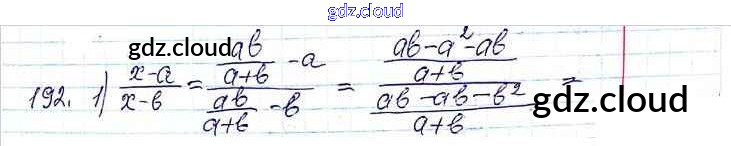 gdz.cloud
gdz.cloud
192. 1) (x-a)/(x-b) = (ab/(a+b) - a)/(ab/(a+b) - b) = ((ab-a²-ab)/(a+b))/((ab-ab-b²)/(a+b)) =
gdz.cloud